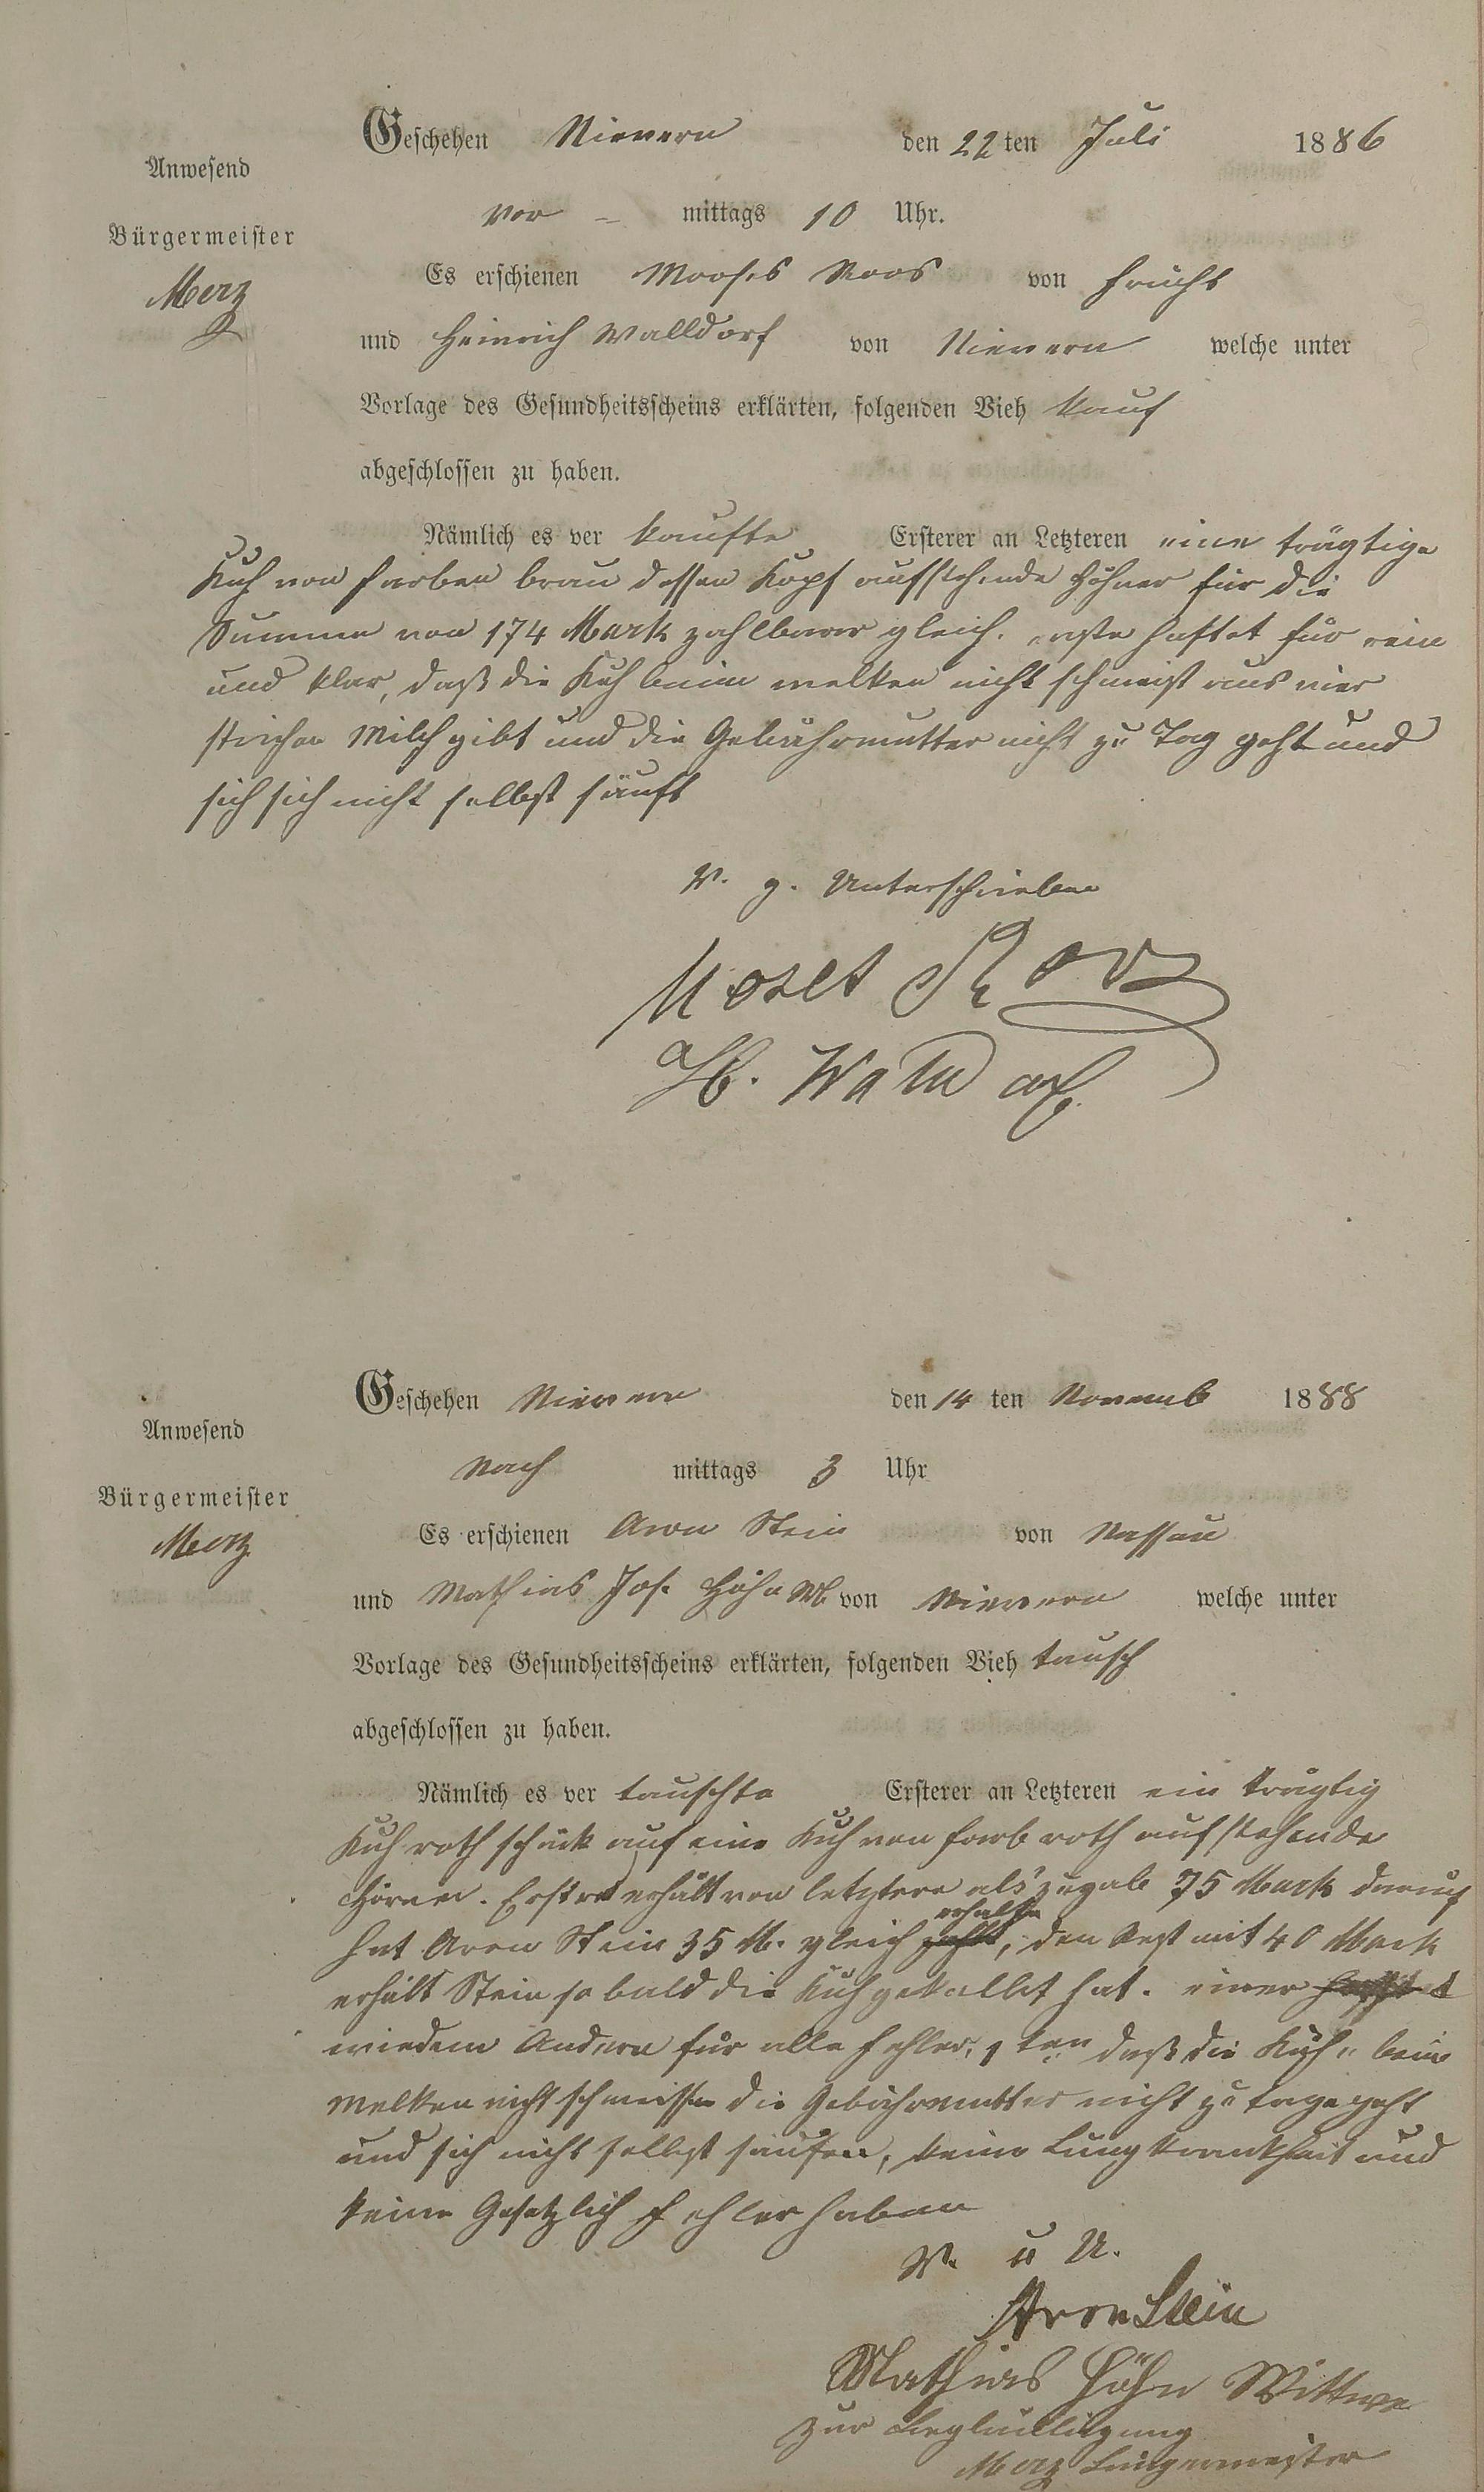 Geschehen Nievern den 22ten Juli 1886
Anwesend
Vor- mittags 10 Uhr.
Bürgermeister
Merz
Es erschienen Mooses Roos von Frücht
und Heinrich Walldorf von Nievern welche unter
Vorlage des Gesundheitsscheins erklärten, folgenden Vieh kauf
abgeschlossen zu haben.
Nämlich es ver kaufte Ersterer an Letzteren eine trägtige
Kuh von farben braun dessen Kopf aufstehende Höhner für die
Summe von 174 Mark zahlbaar gleich. erste haftet für rein
und klar, daß die Kuh beim melken nicht schmeißt aus vier
strichen Milch gibt und die Gebährmutter nicht zu Tag geht und
sich sich nicht selbst säuft
V. g. Unterschrieben
Moses Roos
H. Walldorf
Geschehen Nievern den 14 ten Novemb 1888
Anwesend
Nach mittags 3 Uhr
Bürgermeister
Merz
Es erschienen Aron Stein von Nassau
und Mathias Jos. Höhn W. von Nievern welche unter
Vorlage des Gesundheitsscheins erklärten, folgenden Vieh tausch
abgeschlossen zu haben.
Nämlich es ver tauschte Ersterer an Letzteren ein trägtig
Kuh roth schäck auf eine Kuh von farb roth aufstehende
Hörner. Erstrer erhält von letztere als zugab 75 Mark darauf
hat Aron Stein 35 M. gleich zahlt erhalten, den Rest mit 40 Mark
erhält Stein so bald die Kuh gekalbt hat. einer haftet
wiedem Andern für alle fehler, 1 ten daß die Küh, beim
melken nicht schmeissen die Gebährmutter nicht zu tage geht
und sich nicht selbst saufen, keine Lungkrankheit und
keine Gesetzlich fehler haben
V. u U.
Aron Stein
Mathias Höhn Wittwe
zur Beglaubigung
Merz Bürgermeister